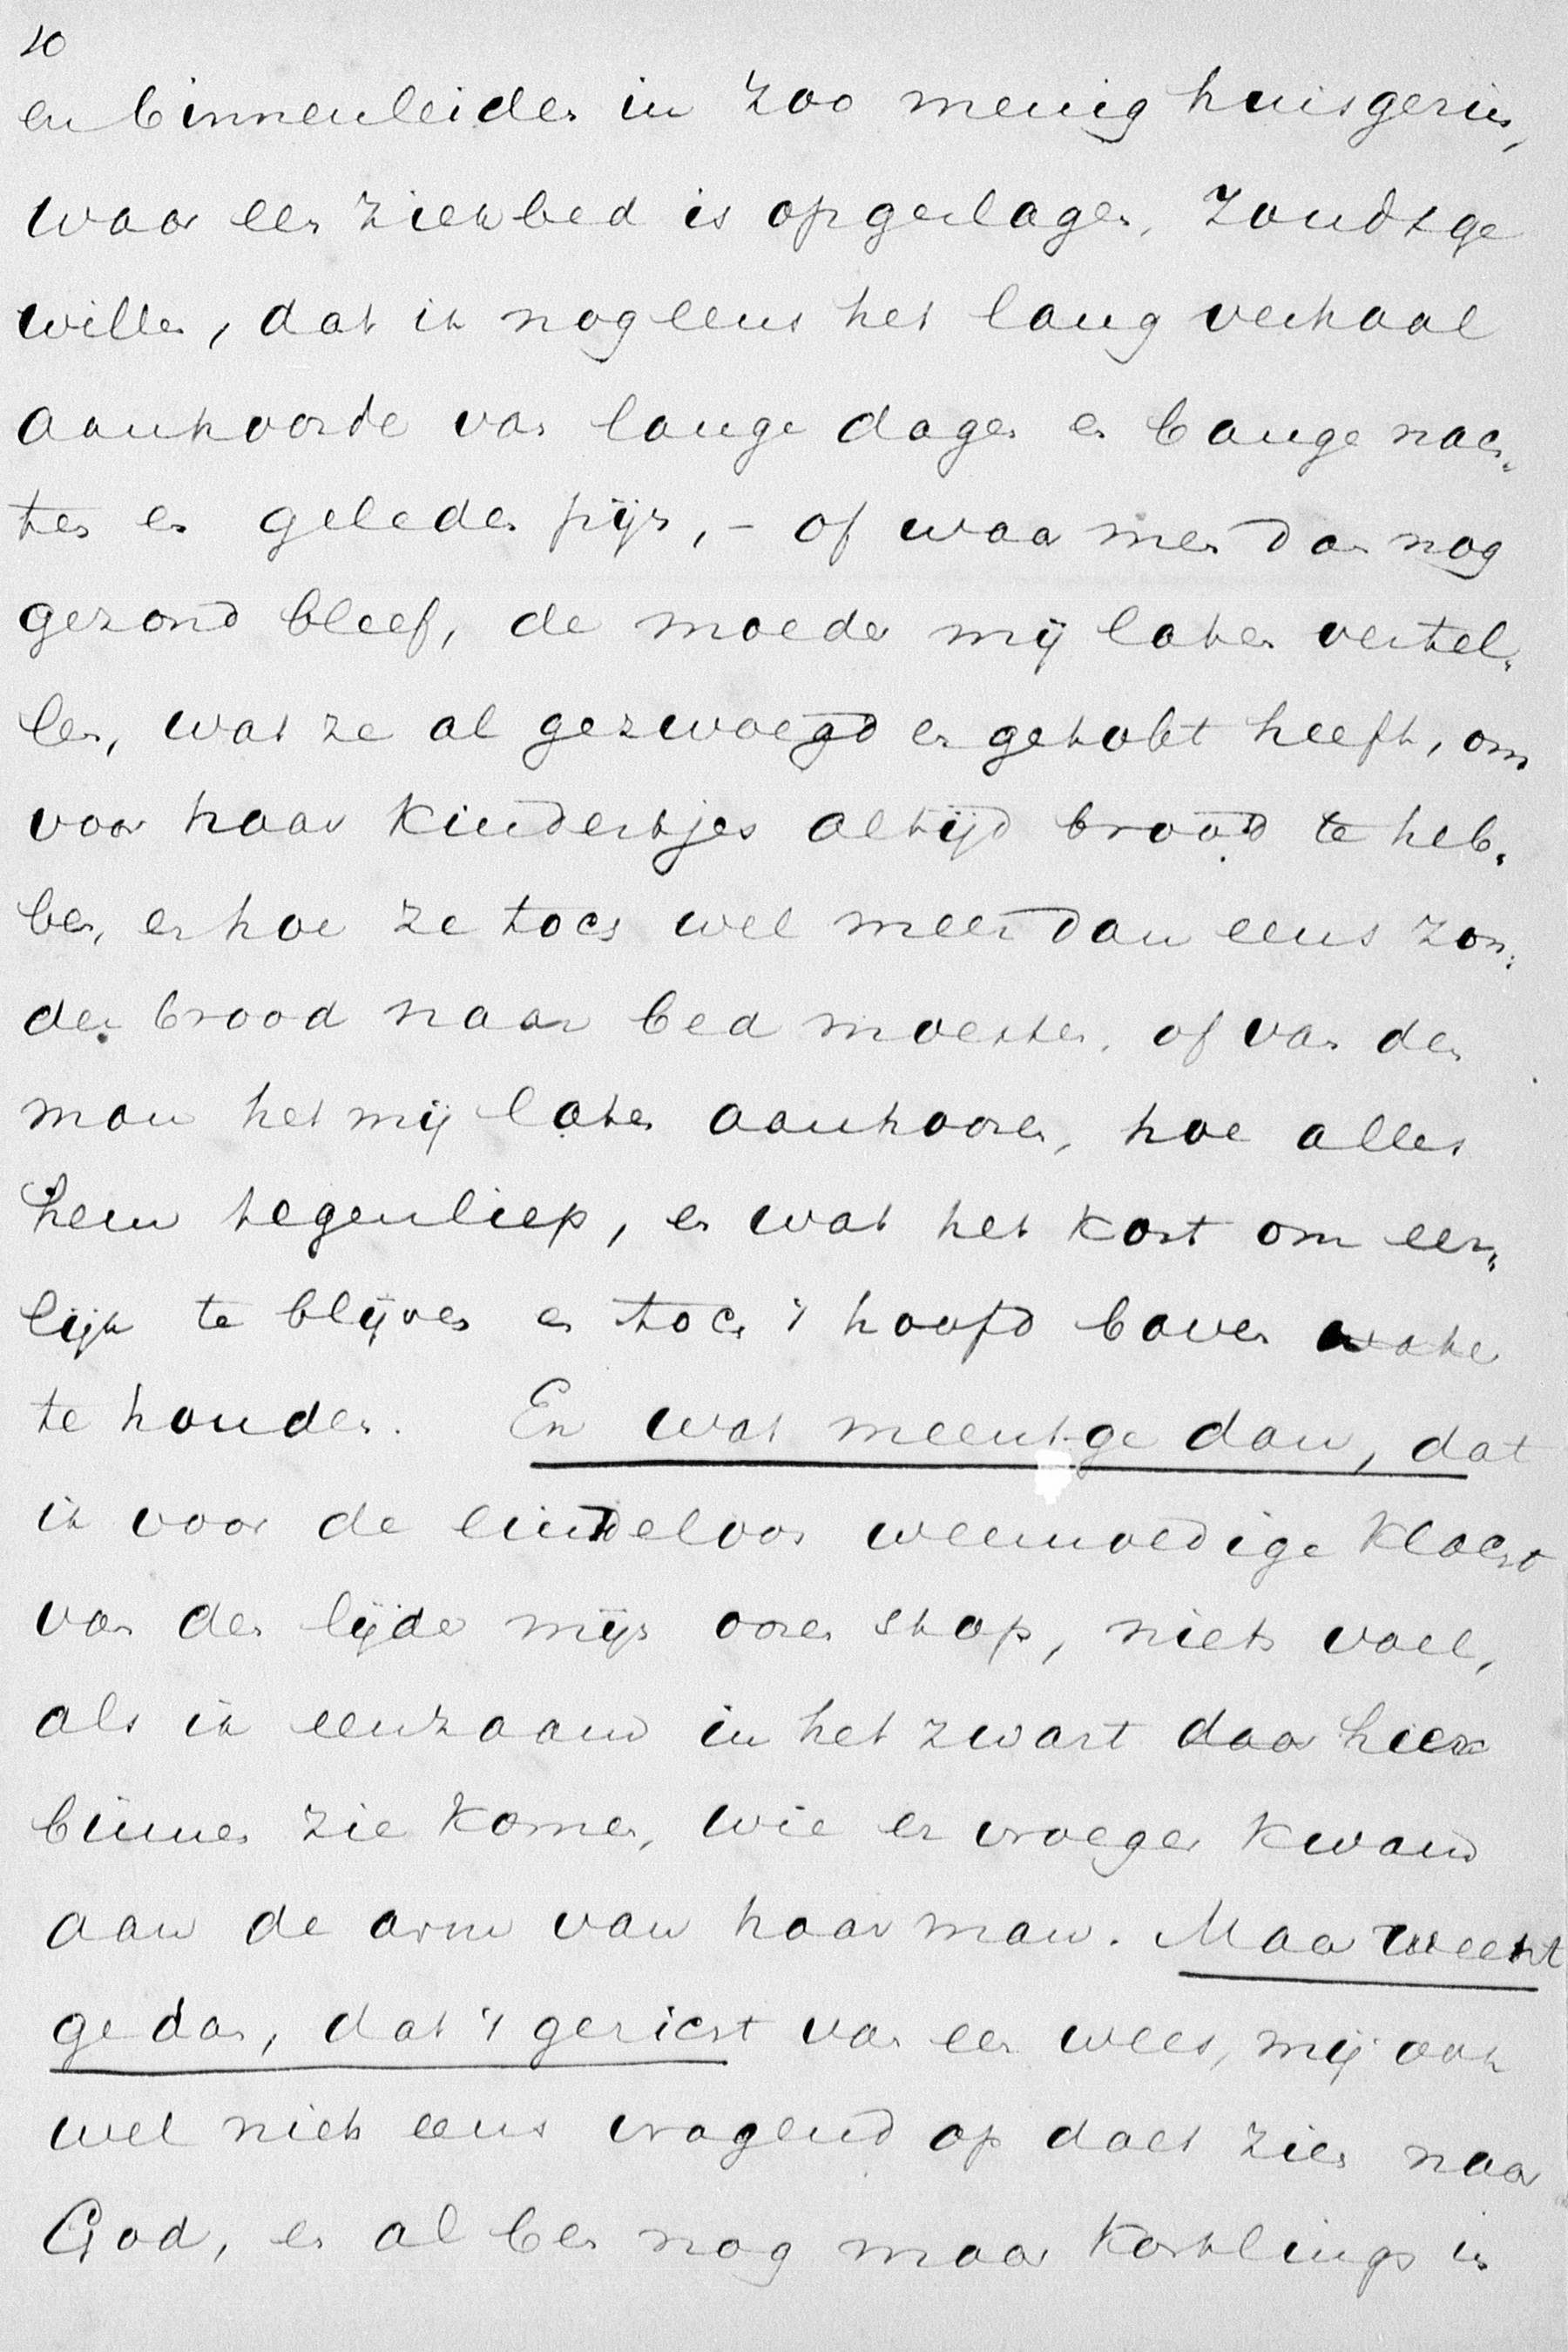 10
en binnenleiden in zoo menig huisgezin,
waar een ziekbed is opgeslagen. Zoudt ge
willen, dat ik nog eens het lang verhaal
aanhoorde van lange dagen en bange nach-
ten en geleden pijn, – of waar men dan nog
gezond bleef, de moeder mij laten vertel-
len, wat ze al gezwoegd en getobt heeft, om
voor haar kindertjes altijd brood te heb-
ben, en hoe ze toch wel meer dan eens zon-
der brood naar bed moesten, of van den
man het mij laten aanhooren, hoe alles
hem tegenliep, en wat het kost om eer-
lijk te blijven en toch 't hoofd boven water
te houden. En wat meent ge dan, dat
ik voor de eindeloos weemoedige klacht
van den lijder mijn ooren stop, niets voel,
als ik eenzaam in het zwart daar hier
binnen zie komen, wie er vroeger kwam
aan de arm van haar man. Maar weent
ge dan, dat 't gezicht van een wees, mij ook
wel niet eens vragend op doet zien naar
God, en al ben nog maar kortlings in